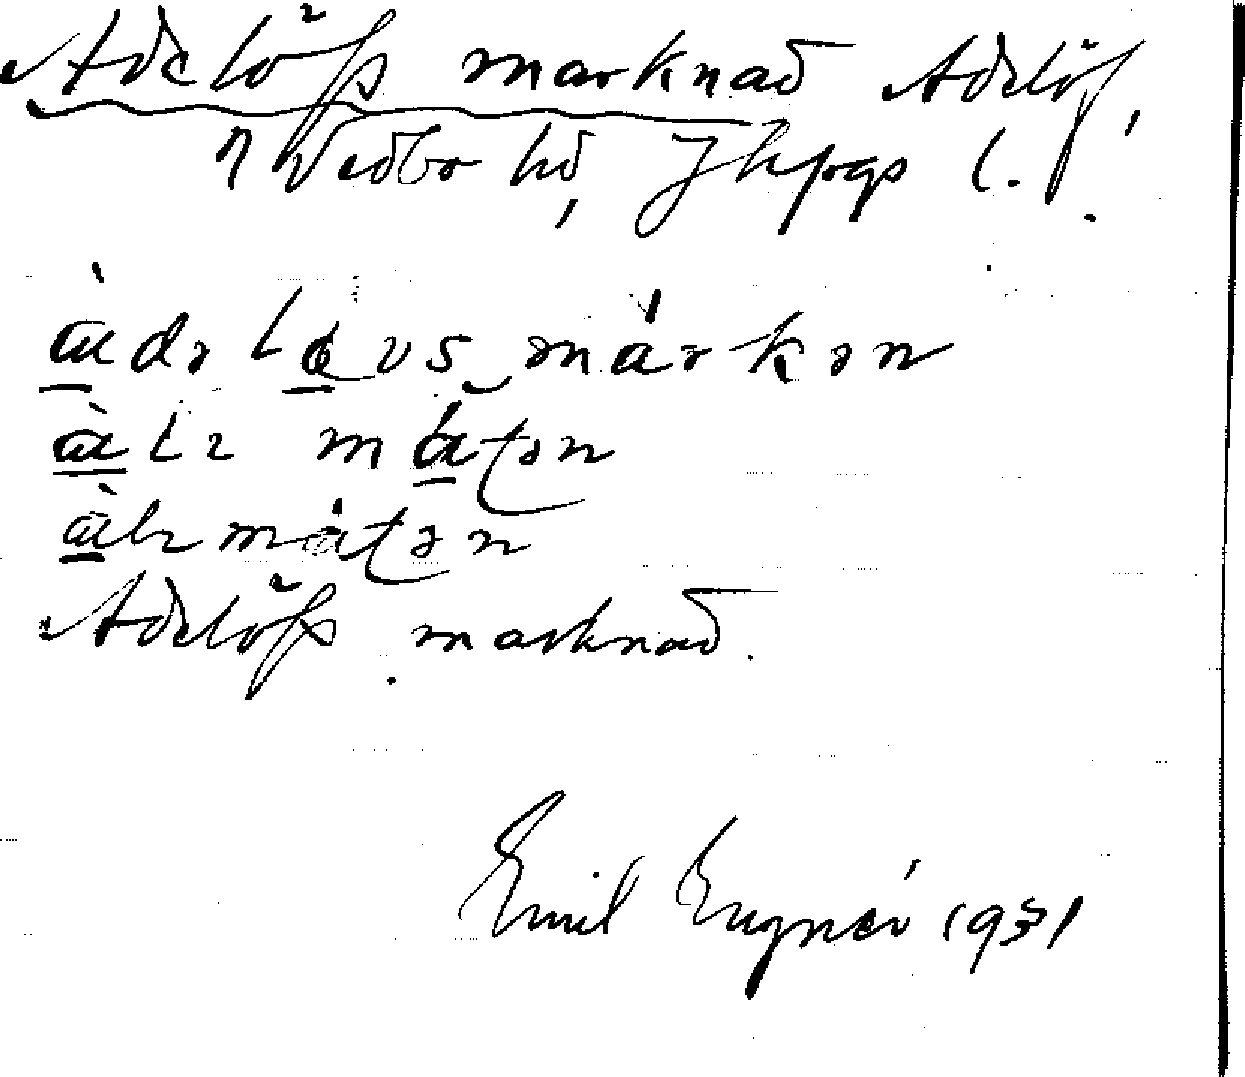 Adelöfs marknad Adelöf,
N Vedbo hd, Jkpgs l.
àdəlövs márkən
àlə mátən
àlə mátən
Adelöfs marknad.
Emil 1931